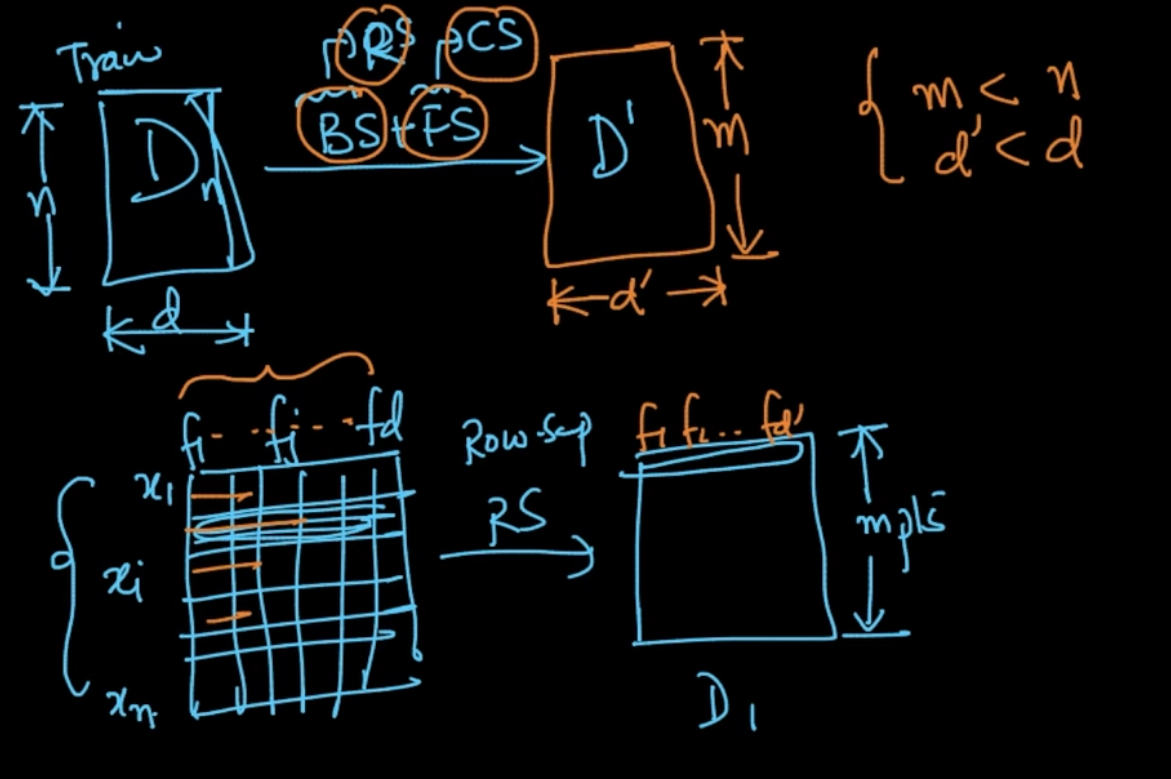 Train
RS CS
BS + FS
n
D
n
d
D'
m
d'
m < n
d' < d
f1 - ·· fj ·-· fd
x1
xi
xn
Row-Sap
RS
f1 f2 .. fd'
m pts
D1